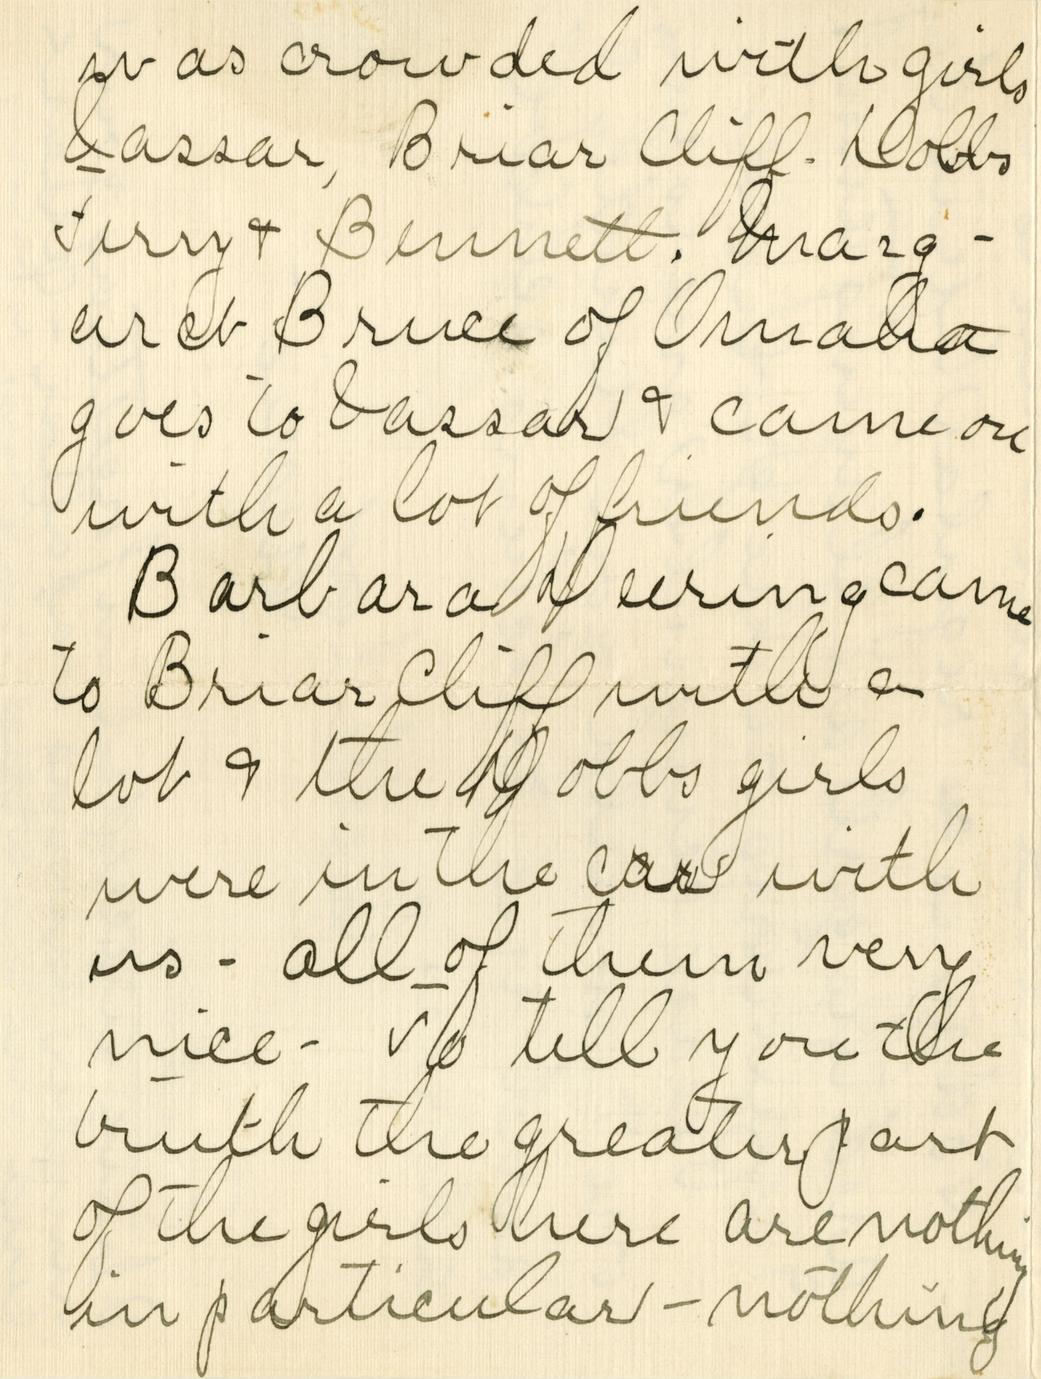 was crowded with girls
Vassar, Briar Cliff. Dobbs
Ferry & Bennett. Marg-
aret Bruce of Omaha
goes to Vassar & came on
with a lot of friends.
Barbara Deering came
to Briar Cliff with a
lot & the Dobbs girls
were in the car with
us - all of them very
nice - To tell you the
truth the greater part
of the girls here are nothing
in particular - nothing